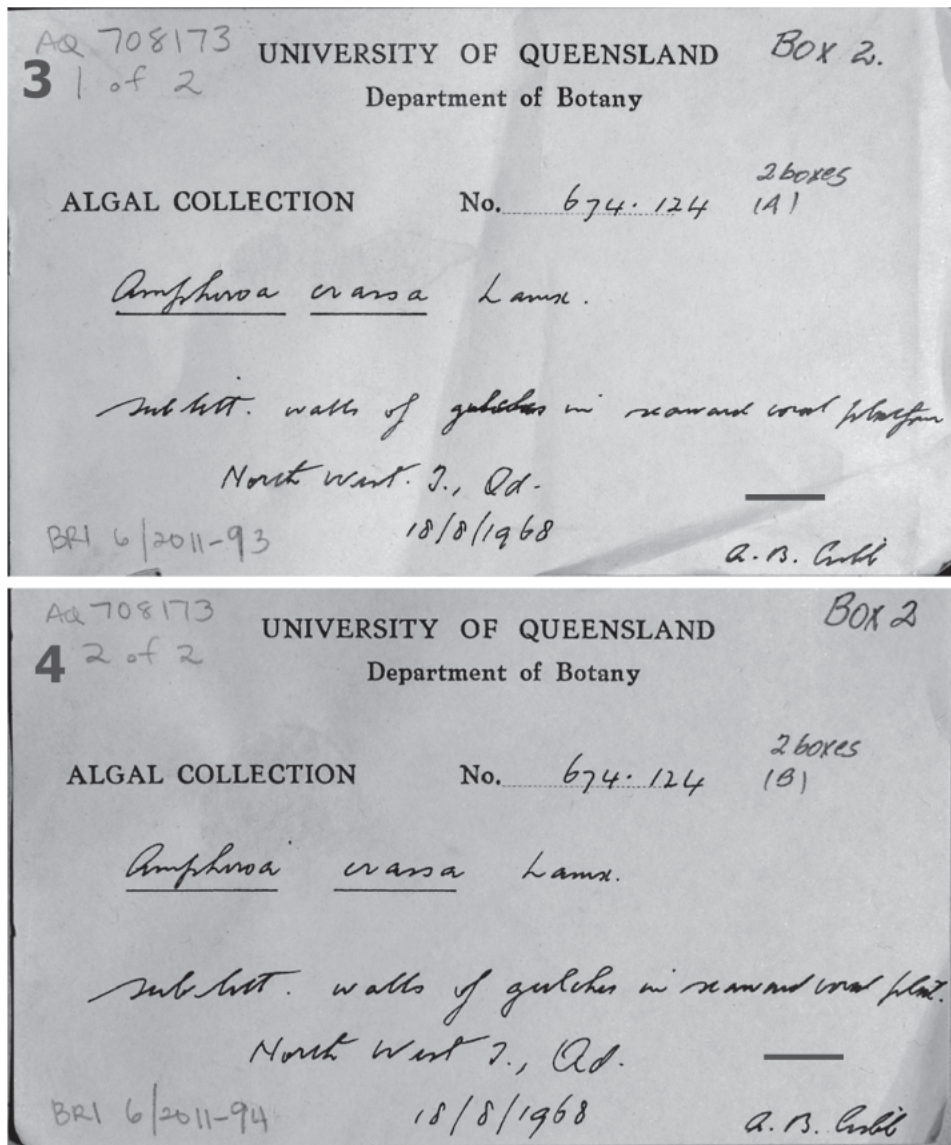 AQ 708173
3 1 of 2
UNIVERSITY OF QUEENSLAND
Box 2.
Department of Botany
2 boxes
ALGAL COLLECTION No. 674.124 (A)
Amphiroa crassa Lamx.
sublitt. walls of gulches in seaward coral platform
North West. I., Qd.
18/8/1968
BRI 6/2011-93
A. B. Cribb
AQ 708173
4 2 of 2
UNIVERSITY OF QUEENSLAND
Box 2
Department of Botany
2 boxes
ALGAL COLLECTION No. 674.124 (B)
Amphiroa crassa Lamx.
sublitt. walls of gulches in seaward coral plat.
North West I., Qd.
18/8/1968
BRI 6/2011-94
A. B. Cribb